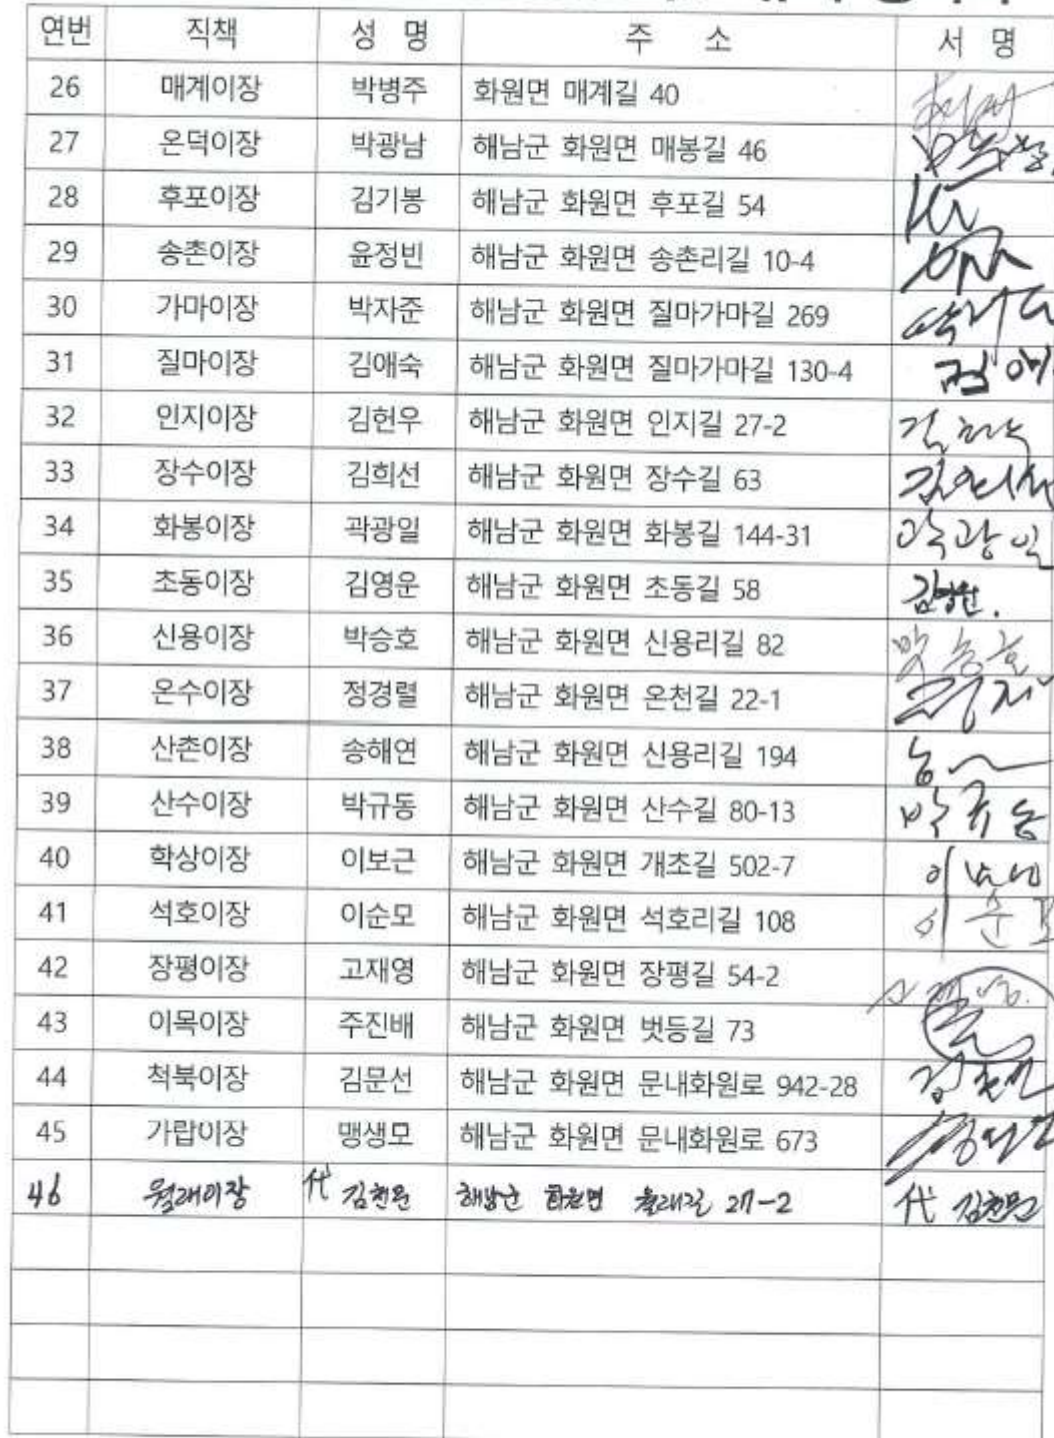 연번 직책 성 명 주 소 서 명
26 매계이장 박병주 화원면 매계길 40
27 온덕이장 박광남 해남군 화원면 매봉길 46
28 후포이장 김기봉 해남군 화원면 후포길 54
29 송촌이장 윤정빈 해남군 화원면 송촌리길 10-4
30 가마이장 박자준 해남군 화원면 질마가마길 269
31 질마이장 김애숙 해남군 화원면 질마가마길 130-4
32 인지이장 김헌우 해남군 화원면 인지길 27-2
33 장수이장 김희선 해남군 화원면 장수길 63
34 화봉이장 곽광일 해남군 화원면 화봉길 144-31 곽광일
35 초동이장 김영운 해남군 화원면 초동길 58
36 신용이장 박승호 해남군 화원면 신용리길 82 박승호
37 온수이장 정경렬 해남군 화원면 온천길 22-1
38 산촌이장 송해연 해남군 화원면 신용리길 194
39 산수이장 박규동 해남군 화원면 산수길 80-13 박규동
40 학상이장 이보근 해남군 화원면 개초길 502-7
41 석호이장 이순모 해남군 화원면 석호리길 108 이순모
42 장평이장 고재영 해남군 화원면 장평길 54-2
43 이목이장 주진배 해남군 화원면 벗등길 73
44 척북이장 김문선 해남군 화원면 문내화원로 942-28
45 가랍이장 맹생모 해남군 화원면 문내화원로 673
46 월래이장 代 해남군 화원면 월래길 27-2 代